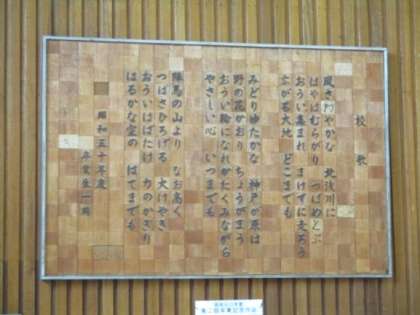 校歌
風さわやかな 北浅川に
はやはむらがり つばめとぶ
おうい集まれ まけずに走ろう
広がる大地 どこまでも
みどりゆたかな 神戸が原は
野の花かおり ちょうがまう
おうい輪になれ かたくみながら
やさしい心 いつまでも
陣馬の山より なお高く
つばさひろげる 大けやき
おういはばたけ 力のかぎり
はるかな空の はてまでも
昭和五十年度
卒業生一同